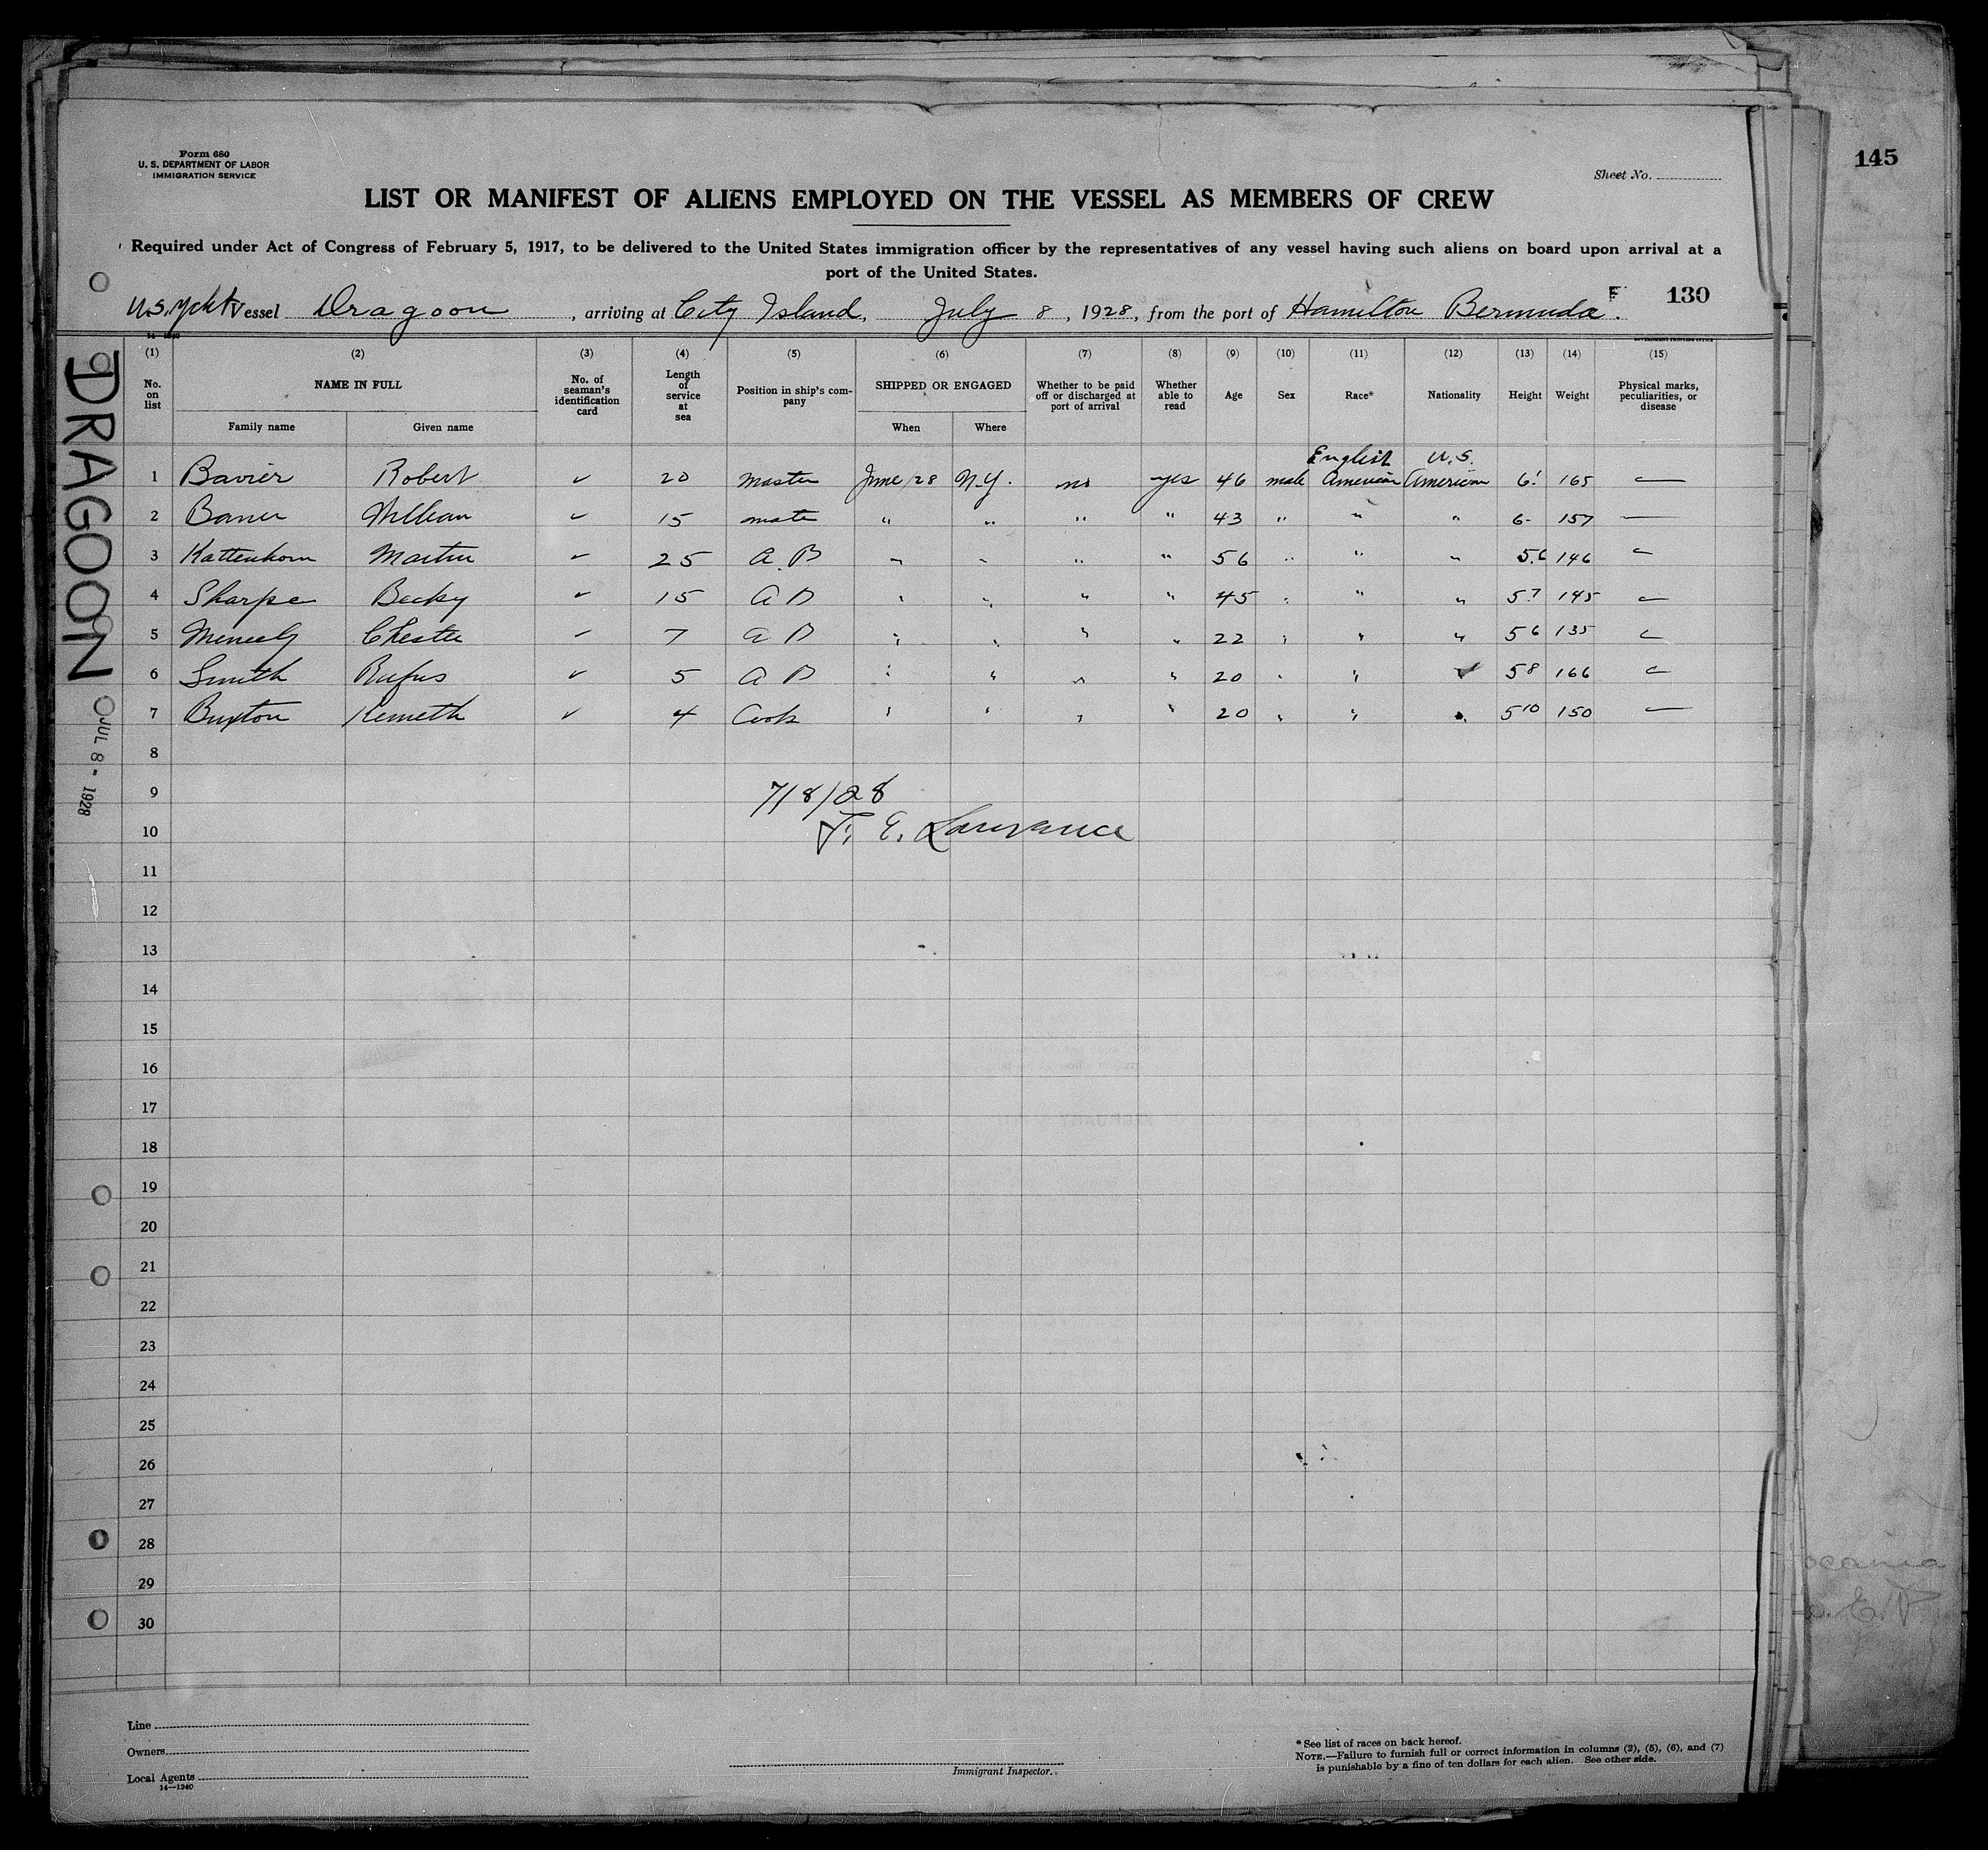 145
Form 680
U. S. DEPARTMENT OF LABOR
IMMIGRATION SERVICE
Sheet No.
LIST OR MANIFEST OF ALIENS EMPLOYED ON THE VESSEL AS MEMBERS OF CREW
Required under Act of Congress of February 5, 1917, to be delivered to the United States immigration officer by the representatives of any vessel having such aliens on board upon arrival at a
port of the United States.
130
U.S. Yacht Vessel Dragoon, arriving at City Island, July 8, 1928, from the port of Hamilton Bermuda.
(1) (2) (3) (4) (5) (6) (7) (8) (9) (10) (11) (12) (13) (14) (15)
No. on list NAME IN FULL No. of seaman's identification card Length of service at sea Position in ship's company SHIPPED OR ENGAGED Whether to be paid off or discharged at port of arrival Whether able to read Age Sex Race* Nationality Height Weight Physical marks, peculiarities, or disease
Family name Given name When Where
English U.S.
1 Bavier Robert ✓ 20 master June 28 N.Y. no yes 46 male American American 6' 165 —
2 ✓ 15 mate " " " " 43 " " " 6- 157 —
3 Kattenhorn Martin ✓ 25 A.B " " " " 56 " " " 5.6 146 —
4 Sharpe Becky ✓ 15 A B " " " " 45 " " " 5.7 145 —
5 Chester ✓ 7 a B " " " " 22 " " " 5 6 135 —
6 Smith Rufus ✓ 5 A B " " " " 20 " " " 5 8 166 —
7 Buxton Kenneth ✓ 4 Cook " " " " 20 " " " 5 10 150 —
8
9
7/8/28
10
11
12
13
14
15
16
17
18
19
20
21
22
23
24
25
26
27
28
29
30
DRAGOON
JUL 8 - 1928
Line
Owners
Local Agents
14—1240
Immigrant Inspector.
* See list of races on back hereof.
NOTE.—Failure to furnish full or correct information in columns (2), (5), (6), and (7)
is punishable by a fine of ten dollars for each alien. See other side.